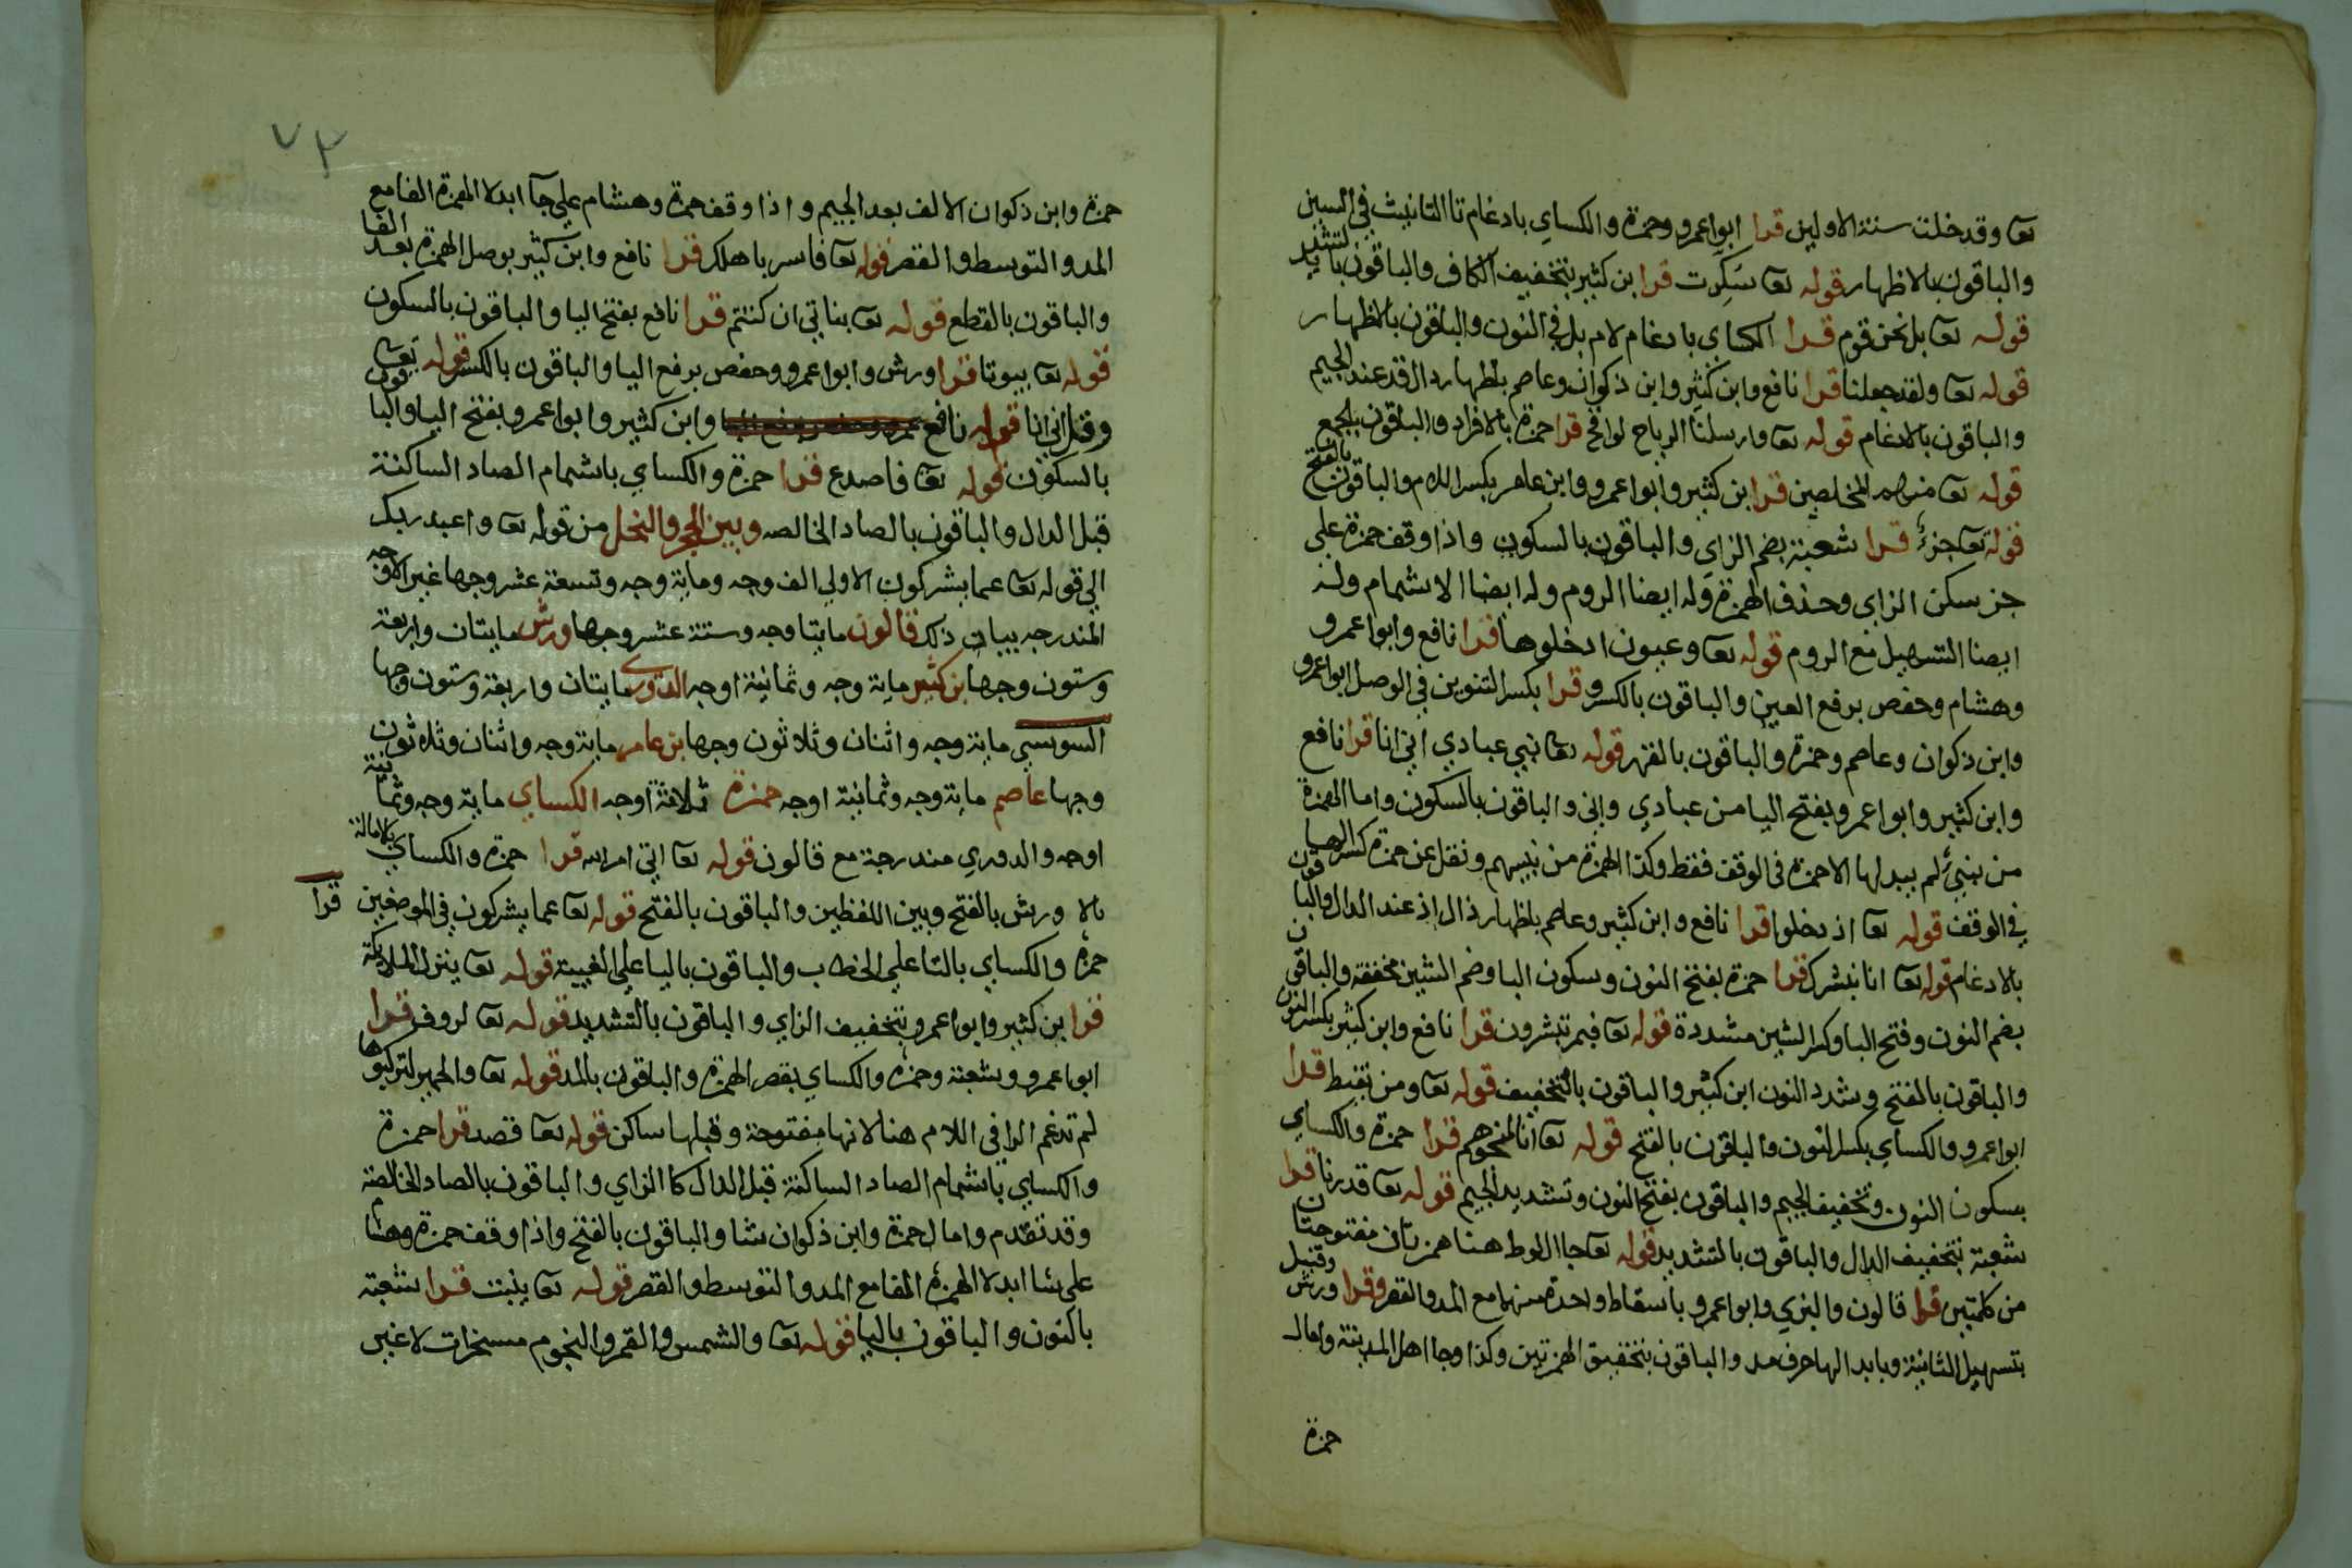 تعا وقد خلت سنة الاولين قرا ابوا عمرو وحمزة والكساي بادغام تا التانيث في السين
والباقون بالاظهار قوله تعا سكرت قرا ابن كثير بتخفيف الكاف والباقون بالتشديد
قوله تعا بل نحن قوم قرا الكساي بادغام لام بل في النون والباقون بالاظهار
قوله تعا ولقد جعلنا قرا نافع وابن كثير وابن ذكوان وعاصم باظهار دال قد عند الجيم
والباقون بالادغام قوله تعا وارسلنا الرياح لواقح قرا حمزة بالافراد والباقون بالجمع
قوله تعا منهم المخلصين قرا ابن كثير وابوا عمرو وابن عامر بكسر اللام والباقون بالفتح
قوله تعا جزء قرا شعبة بضم الزاي والباقون بالسكون واذا وقف حمزة على
جز سكن الزاي وحذف الهمزة وله ايضا الروم وله ايضا الاشمام وله
ايضا التسهيل مع الروم قوله تعا وعيون ادخلوها قرا نافع وابوا عمرو
وهشام وحفص برفع العين والباقون بالكسر وقرا بكسر التنوين في الوصل ابوا عمرو
وابن ذكوان وعاصم وحمزة والباقون بالضم قوله تعا نبي عبادي اني انا قرا نافع
وابن كثير وابوا عمرو بفتح اليا من عبادي واني والباقون بالسكون واما الهمزة
من نبئ لم يبدلها الا حمزة في الوقف فقط وكذا الهمزة من نبيهم ونقل عن حمزة كسر الها
في الوقف قوله تعا اذ دخلوا قرا نافع وابن كثير وعاصم باظهار ذال اذ عند الدال والباقون
بالادغام قوله تعا انا نبشرك قرا حمزة بفتح النون وسكون البا وضم الشين مخففة والباقون
بضم النون وفتح البا وكسر الشين مشددة قوله تعا فبم تبشرون قرا نافع وابن كثير بكسر النون
والباقون بالفتح وشدد النون ابن كثير والباقون بالتخفيف قوله تعا ومن يقنط قرا
ابوا عمرو والكساي بكسر النون والباقون بالفتح قوله تعا انا لمنجوهم قرا حمزة والكساي
بسكون النون وتخفيف الجيم والباقون بفتح النون وتشديد الجيم قوله تعا قدرنا قرا
شعبة بتخفيف الدال والباقون بالتشديد قوله تعا جا ال لوط هنا همزتان مفتوحتان
من كلمتين قرا قالون والبزي وابوا عمرو باسقاط واحدة منهما مع المد والقصر وقرا ورش وقنبل
بتسهيل الثانية وبابدالها حرف مد والباقون بتحقيق الهمزتين وكذا وجا اهل المدينة وامال
حمزة
٧٣
حمزة وابن ذكوان الالف بعد الجيم واذا وقف حمزة وهشام علي جآ ابدلا الهمزة الفا مع
المد والتوسط والقصر قوله تعا فاسر باهلك قرا نافع وابن كثير بوصل الهمزة بعد الفا
والباقون بالقطع قوله تعا بناتي ان كنتم قرا نافع بفتح اليا والباقون بالسكون
قوله تعا بيوتا قرا ورش وابوا عمرو وحفص برفع اليا والباقون بالكسر قوله تعا
وقل اني انا قوله نافع وابن كثير وابوا عمرو بفتح اليا والباقون
بالسكون قوله تعا فاصدع قرا حمزة والكساي باشمام الصاد الساكنة
قبل الدال والباقون بالصاد الخالصه وبين الحجر والنحل من قوله تعا واعبد ربك
الي قوله تعا عما يشركون الاولي الف وجه وماية وجه وتسعة عشر وجها غير الاوجه
المندرجه بيان ذلك قالون مايتا وجه وستة عشر وجها ورش مايتان واربعة
وستون وجها ابن كثير ماية وجه وثمانية اوجه الدوري مايتان واربعة وستون وجها
السوسي ماية وجه واثنان وثلاثون وجها ابن عامر ماية وجه واثنان وثلاثون
وجها عاصم ماية وجه وثمانية اوجه حمزة ثلاثة اوجه الكساي ماية وجه وثمانية
اوجه والدوري مندرجة مع قالون قوله تعا اتي امر الله قرا حمزة والكساي بالامالة
ورش بالفتح وبين اللفظين والباقون بالفتح قوله تعا عما يشركون في الموضعين قرا
حمزة والكساي بالتا علي الخطاب والباقون باليا علي الغيبة قوله تعا ينزل الملايكة
قرا ابن كثير وابوا عمرو بتخفيف الزاي والباقون بالتشديد قوله تعا لروف قرا
ابوا عمرو وشعبة وحمزة والكساي بقصر الهمزة والباقون بالمد قوله تعا والحمير لتركبوها
لم تدغم الرا في اللام هنا لانها مفتوحة وقبلها ساكن قوله تعا قصد قرا حمزة
والكساي باشمام الصاد الساكنة قبل الدال كا الزاي والباقون بالصاد الخالصة
وقد تقدم وامال حمزة وابن ذكوان شا والباقون بالفتح واذا وقف حمزة وهشام
علي شا ابدلا الهمزة الفا مع المد والتوسط والقصر قوله تعا ينبت قرا شعبة
بالنون والباقون باليا قوله تعا والشمس والقمر والنجوم مسخرات لا غير